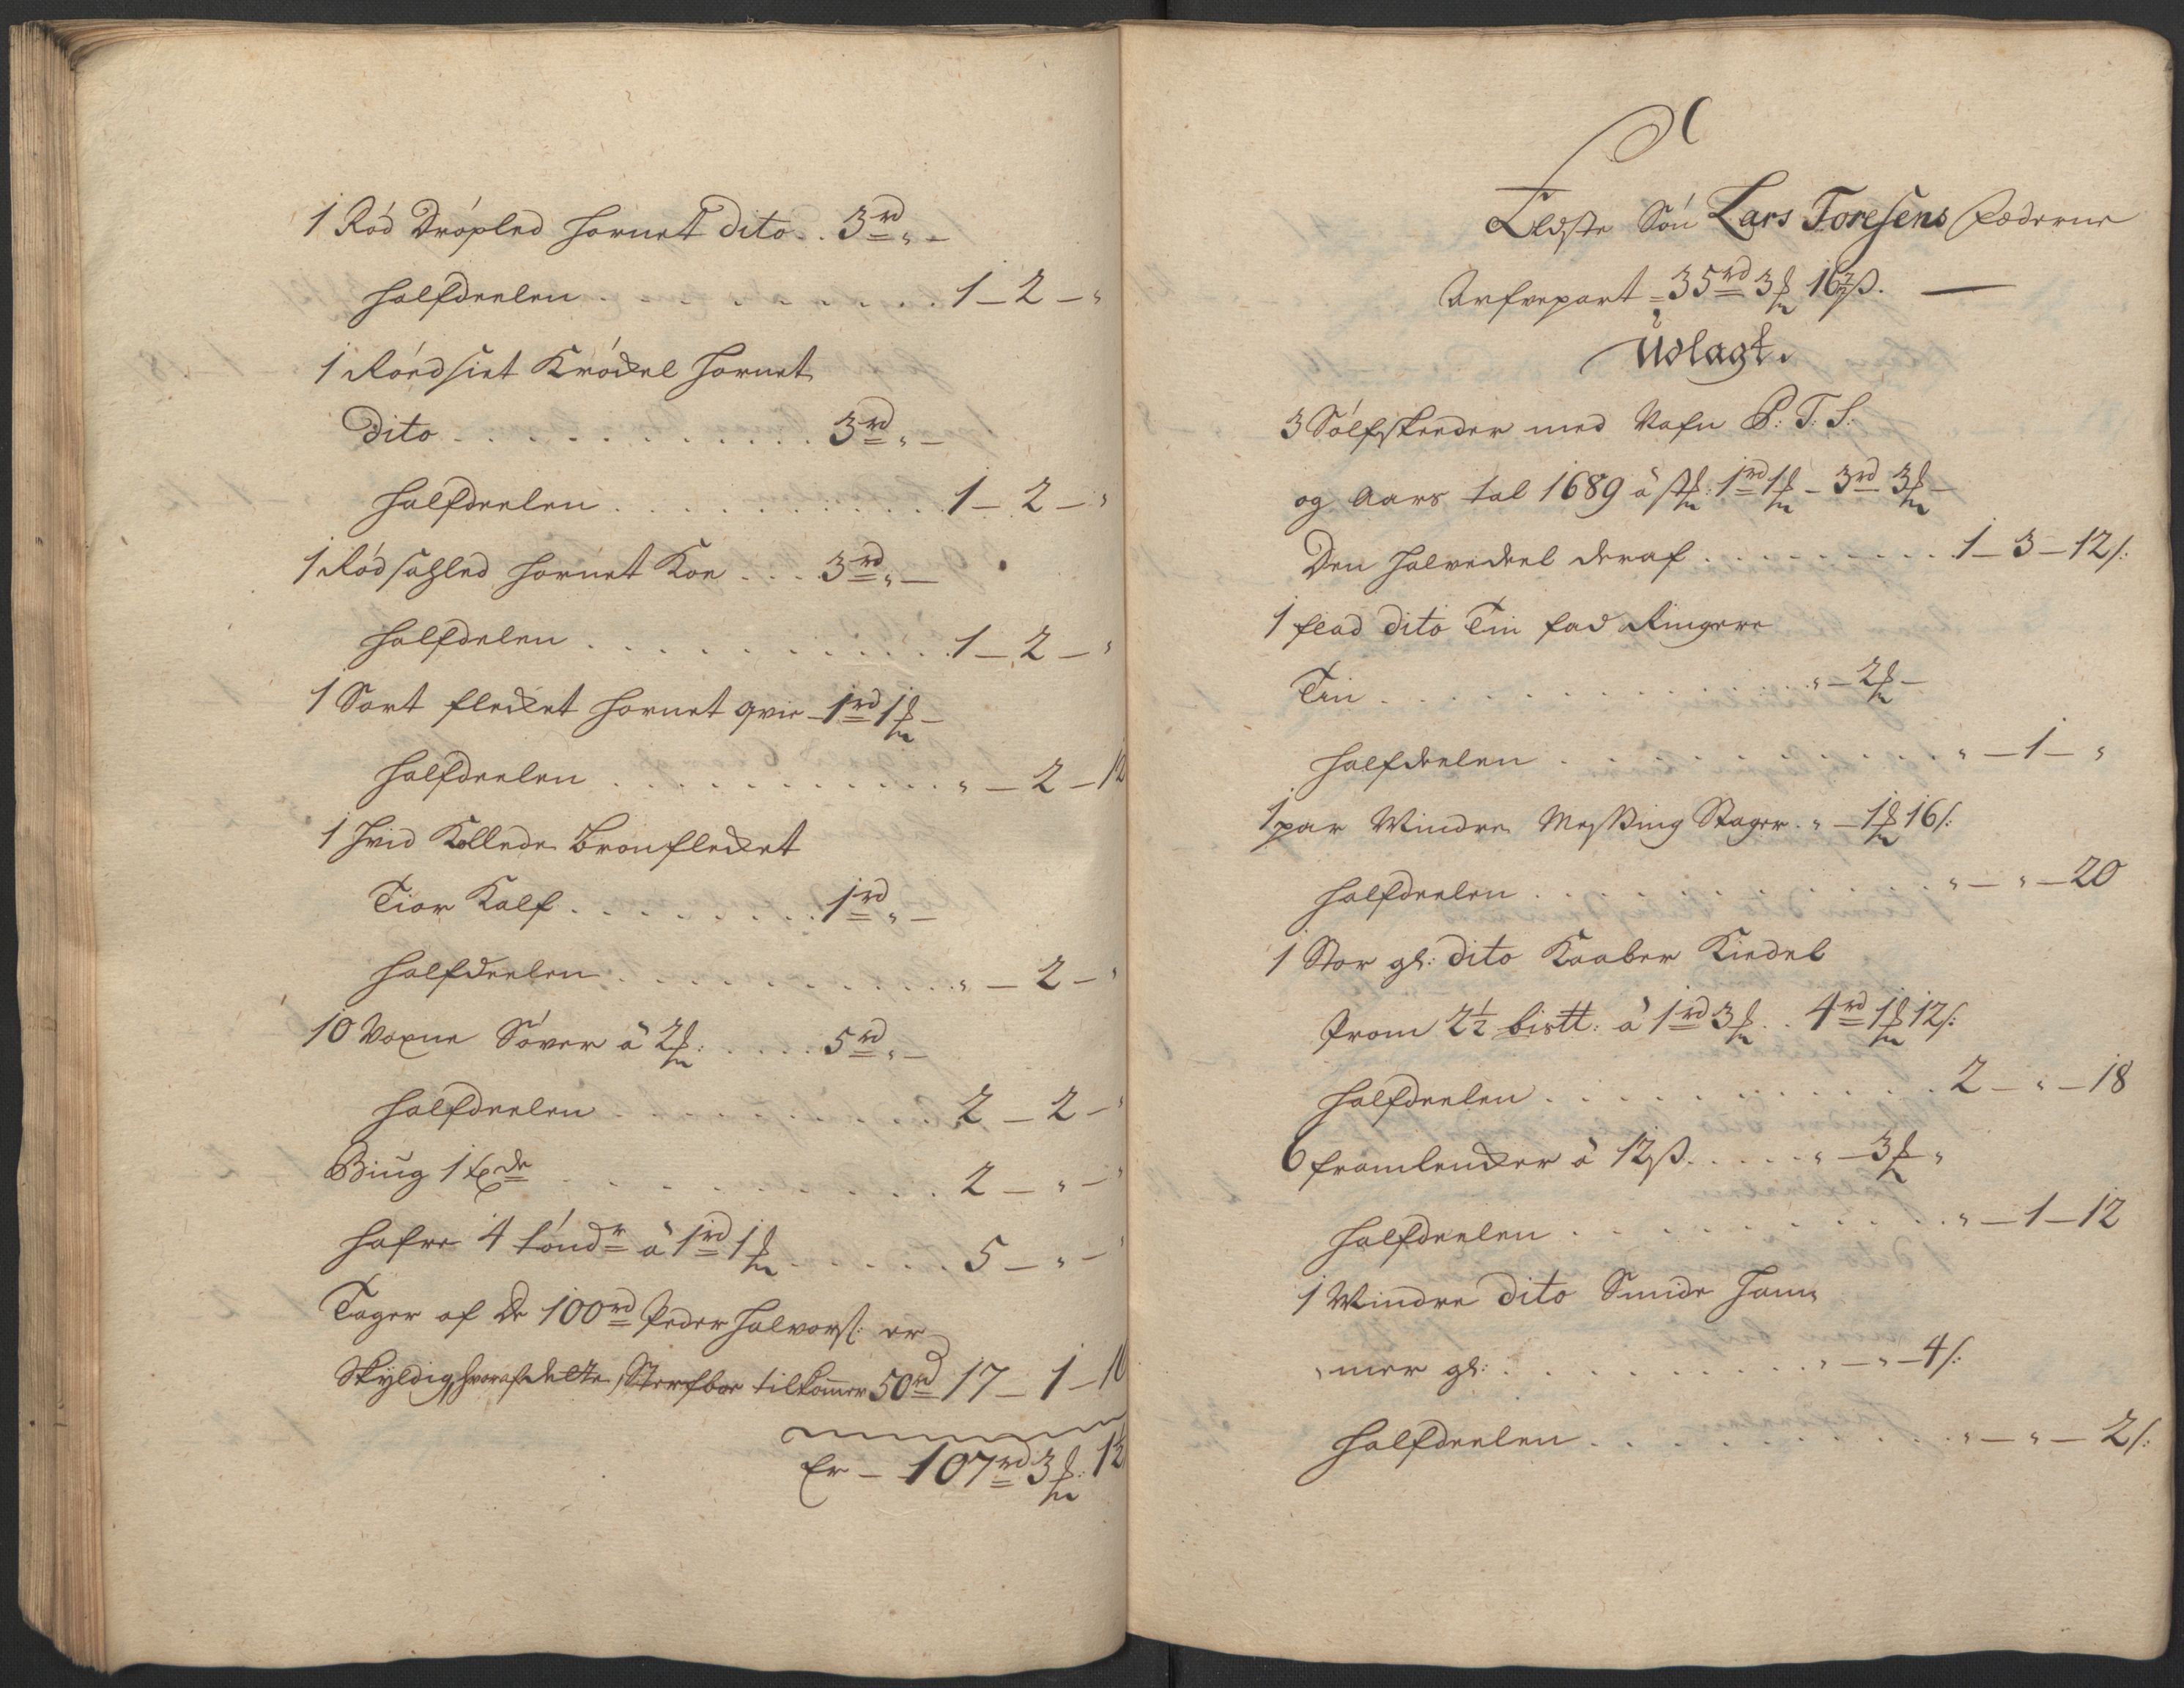 1 Rød Drøpled hornet dito . . 3 rd „ —
halfdeelen . . . . . . . . . . . 1 — 2 — „
1 Røedsiet Krøckel hornet
dito . . . . . . . . . . . . 3 rd „ —
halfdeelen . . . . . . . . . . . 1 — 2 — „
1 Rød sahled hornet Koe . . . 3 rd „ —
halfdelen . . . . . . . . . . . 1 — 2 — „
1 Sort flecket hornet qvie — 1 rd 1 ₻ —
halfdeelen . . . . . . . . . . . „ — 2 — 12
1 Hvid Kollede Brunflecket
Tior Kalf . . . . . . . . . 1 rd „ —
halfdeelen . . . . . . . . . . . „ — 2 — „
10 Voxne Søver à 2 ₻: . . . . 5 rd „ —
halfdeelen . . . . . . . . . . . 2 — 2 — „
Biug 1 tde . . . . . . . . . . . 2 — „ — „
hafre 4 tøndr à 1 rd 1 ₻ . . . . . 5 — „ — „
Tager af de 100 rd Peder Halvors: er
Skyldig, hvoraf dette Sterfboe tilkommer 50 rd 17 — 1 — 16
Er — 107 rd 3 ₻: 12
Eldste Søn Lars Toresens Fæderne
Arfvepart = 35 rd 3 ₻ 16½ ß. —
Udlagt.
3 Sølfskeeder med Nafn P: T: S:
og Aars tal 1689 à st: 1 rd 1 ₻ — 3 rd 3 ₻ —
Den halvedeel deraf . . . . . . . . . 1 — 3 — 12 ß:
1 flad dito Tin fad Ringere
Tin . . . . . . . . . . . . . . . „ — 2 ₻ —
halfdeelen . . . . . . . . . . . . „ — 1 — „
1 par Mindre Messing Stager . „ — 1 ₻ 16 ß:
halfdeelen . . . . . . . . . . . . „ — „ — 20
1 Stor gl: dito Kaaber Kiedel
Prom 2½ bistt: à 1 rd 3 ₻ . . 4 rd 1 ₻ 12 ß:
halfdeelen . . . . . . . . . . . . 2 — „ — 18
6 framlencker à 12 ß. . . . . „ — 3 ₻ „
halfdeelen . . . . . . . . . . . . „ — 1 — 12
1 Mindre dito Smide Ham
mer gl: . . . . . . . . . . „ — „ — 4 ß:
halfdeelen . . . . . . . . . . . . „ — „ — 2 ß: